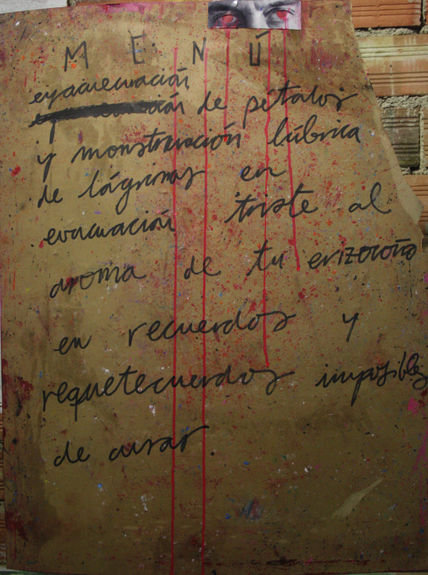 MENÚ
eyacuecuación
de pétalos
y monstruación lúbrica
de lágrimas en
evacuación triste al
aroma de tu erizocoño
en recuerdos y
requetecuerdos imposibles
de